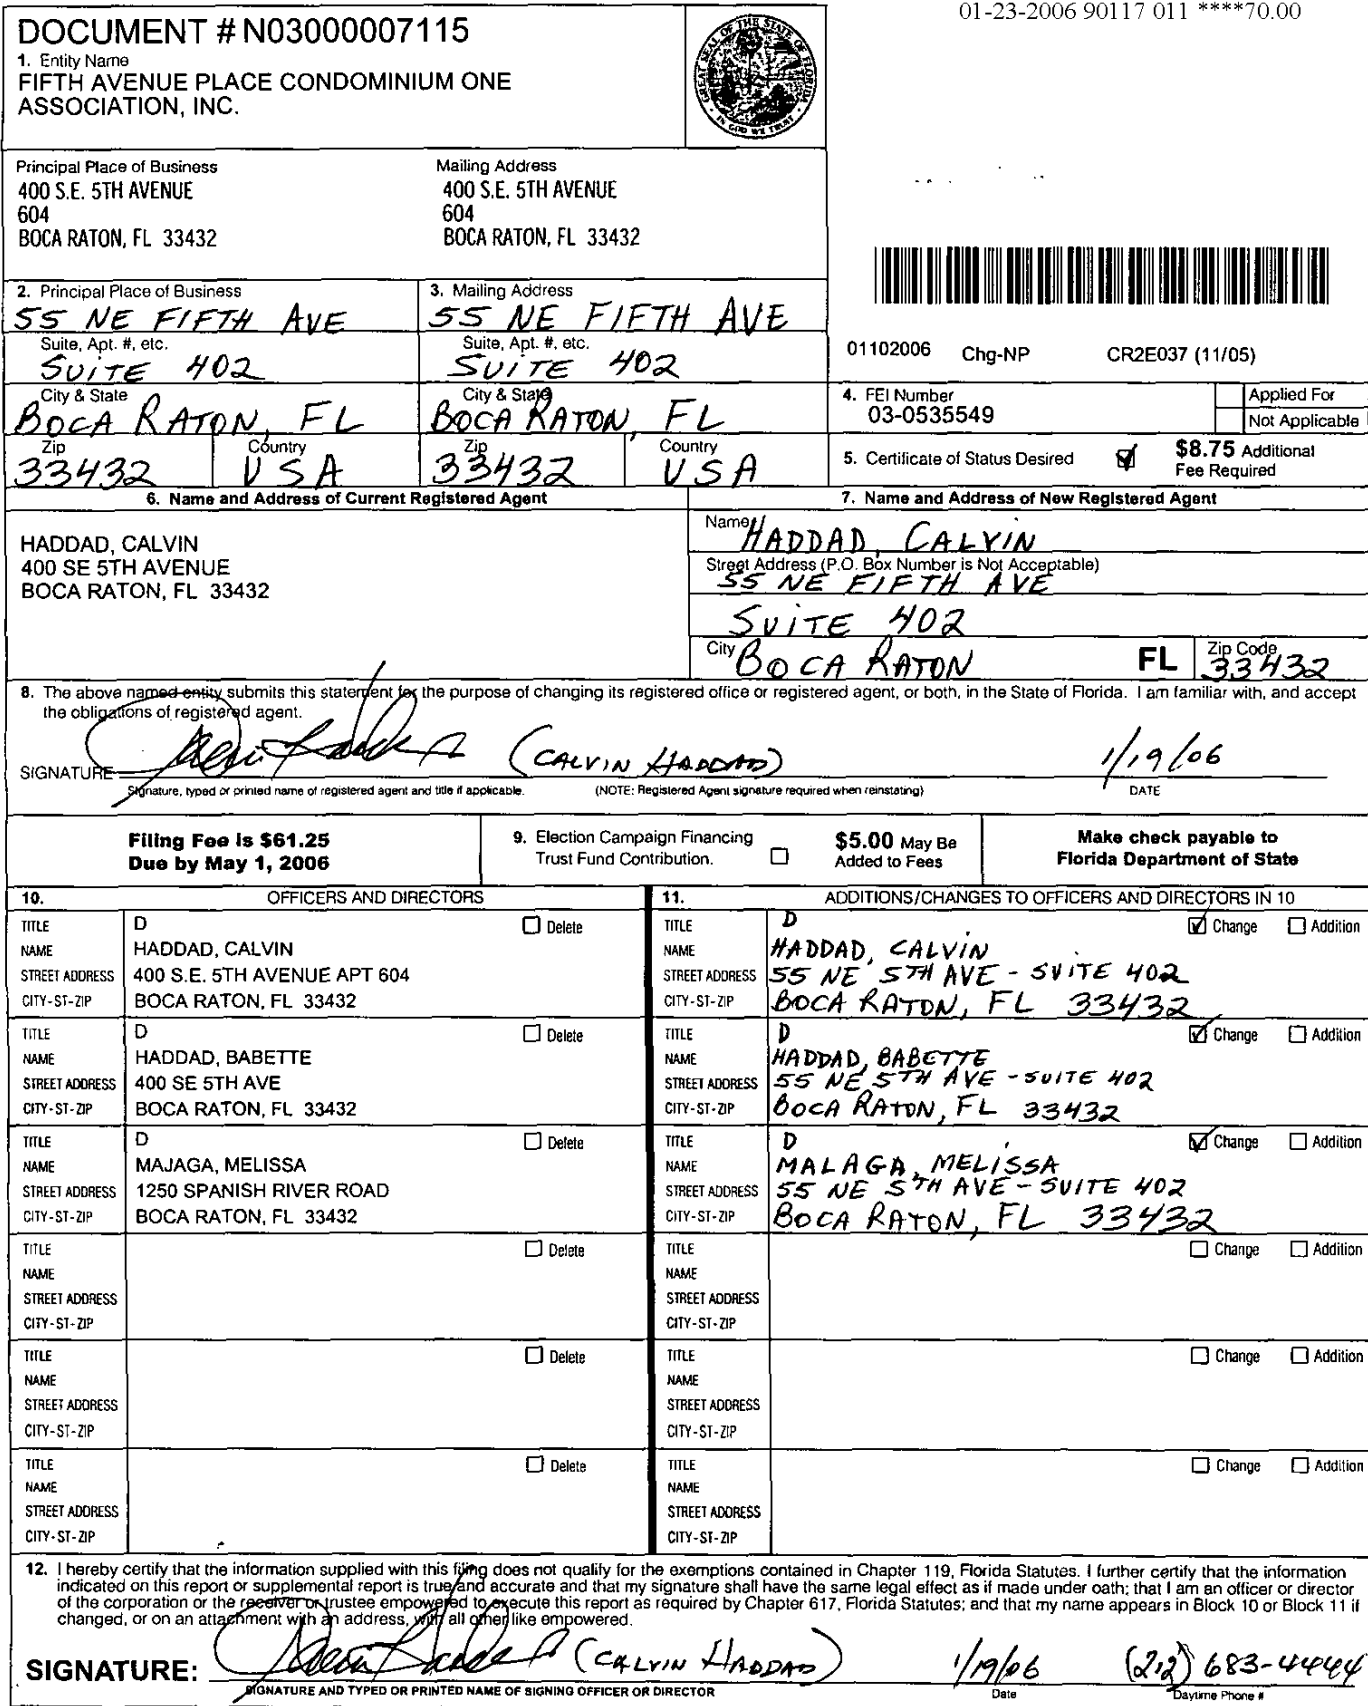 01-23-2006 90117 011 ****70.00
DOCUMENT # N03000007115
1. Entity Name
FIFTH AVENUE PLACE CONDOMINIUM ONE
ASSOCIATION, INC.
GREAT SEAL OF THE STATE OF FLORIDA
IN GOD WE TRUST
Principal Place of Business
400 S.E. 5TH AVENUE
604
BOCA RATON, FL 33432
Mailing Address
400 S.E. 5TH AVENUE
604
BOCA RATON, FL 33432
2. Principal Place of Business
55 NE FIFTH AVE
Suite, Apt. #, etc.
SUITE 402
City & State
BOCA RATON, FL
Zip
33432
Country
USA
3. Mailing Address
55 NE FIFTH AVE
Suite, Apt. #, etc.
SUITE 402
City & State
BOCA RATON, FL
Zip
33432
Country
USA
01102006 Chg-NP CR2E037 (11/05)
4. FEI Number
03-0535549
Applied For
Not Applicable
5. Certificate of Status Desired
$8.75 Additional
Fee Required
6. Name and Address of Current Registered Agent
HADDAD, CALVIN
400 SE 5TH AVENUE
BOCA RATON, FL 33432
7. Name and Address of New Registered Agent
Name HADDAD, CALVIN
Street Address (P.O. Box Number is Not Acceptable)
55 NE FIFTH AVE
SUITE 402
City BOCA RATON FL Zip Code 33432
8. The above named entity submits this statement for the purpose of changing its registered office or registered agent, or both, in the State of Florida. I am familiar with, and accept
the obligations of registered agent.
SIGNATURE (CALVIN HADDAD) 1/19/06
Signature, typed or printed name of registered agent and title if applicable. (NOTE: Registered Agent signature required when reinstating) DATE
Filing Fee is $61.25
Due by May 1, 2006
9. Election Campaign Financing
Trust Fund Contribution.
$5.00 May Be
Added to Fees
Make check payable to
Florida Department of State
10. OFFICERS AND DIRECTORS
11. ADDITIONS/CHANGES TO OFFICERS AND DIRECTORS IN 10
TITLE D Delete
NAME HADDAD, CALVIN
STREET ADDRESS 400 S.E. 5TH AVENUE APT 604
CITY-ST-ZIP BOCA RATON, FL 33432
TITLE D Change Addition
NAME HADDAD, CALVIN
STREET ADDRESS 55 NE 5TH AVE - SUITE 402
CITY-ST-ZIP BOCA RATON, FL 33432
TITLE D Delete
NAME HADDAD, BABETTE
STREET ADDRESS 400 SE 5TH AVE
CITY-ST-ZIP BOCA RATON, FL 33432
TITLE D Change Addition
NAME HADDAD, BABETTE
STREET ADDRESS 55 NE 5TH AVE - SUITE 402
CITY-ST-ZIP BOCA RATON, FL 33432
TITLE D Delete
NAME MAJAGA, MELISSA
STREET ADDRESS 1250 SPANISH RIVER ROAD
CITY-ST-ZIP BOCA RATON, FL 33432
TITLE D Change Addition
NAME MALAGA, MELISSA
STREET ADDRESS 55 NE 5TH AVE - SUITE 402
CITY-ST-ZIP BOCA RATON, FL 33432
TITLE Delete
NAME
STREET ADDRESS
CITY-ST-ZIP
TITLE Change Addition
NAME
STREET ADDRESS
CITY-ST-ZIP
TITLE Delete
NAME
STREET ADDRESS
CITY-ST-ZIP
TITLE Change Addition
NAME
STREET ADDRESS
CITY-ST-ZIP
TITLE Delete
NAME
STREET ADDRESS
CITY-ST-ZIP
TITLE Change Addition
NAME
STREET ADDRESS
CITY-ST-ZIP
12. I hereby certify that the information supplied with this filing does not qualify for the exemptions contained in Chapter 119, Florida Statutes. I further certify that the information
indicated on this report or supplemental report is true and accurate and that my signature shall have the same legal effect as if made under oath; that I am an officer or director
of the corporation or the receiver or trustee empowered to execute this report as required by Chapter 617, Florida Statutes; and that my name appears in Block 10 or Block 11 if
changed, or on an attachment with an address, with all other like empowered.
SIGNATURE: (CALVIN HADDAD) 1/19/06 (212) 683-4444
SIGNATURE AND TYPED OR PRINTED NAME OF SIGNING OFFICER OR DIRECTOR Date Daytime Phone #